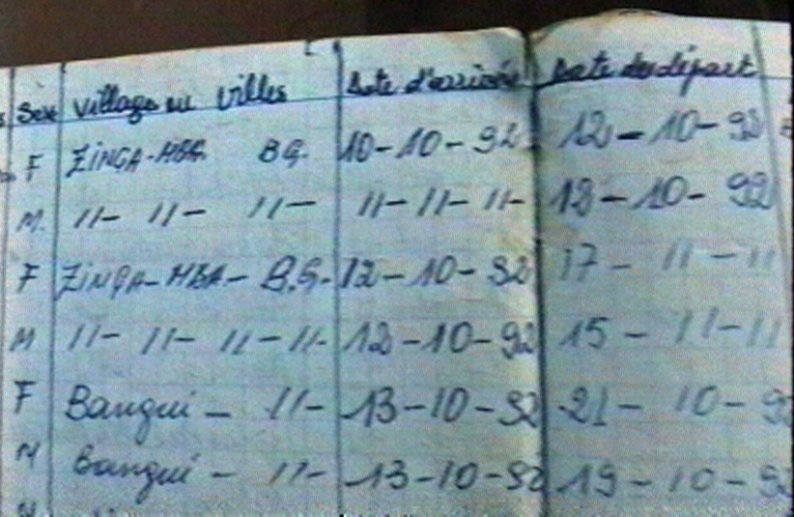 Sexe Village ou villes Date d'arrivée Date de départ
F ZINGA-MBA. BG. 10-10-92 12-10-92
M. 11- 11- 11- 11-11-11- 13-10-92
F ZINGA-MBA- B.G. 12-10-92 17-11-11
M 11- 11- 11-11- 12-10-92 15-11-11
F Bangui- 11- 13-10-92 21-10-92
M Bangui- 11- 13-10-92 19-10-92